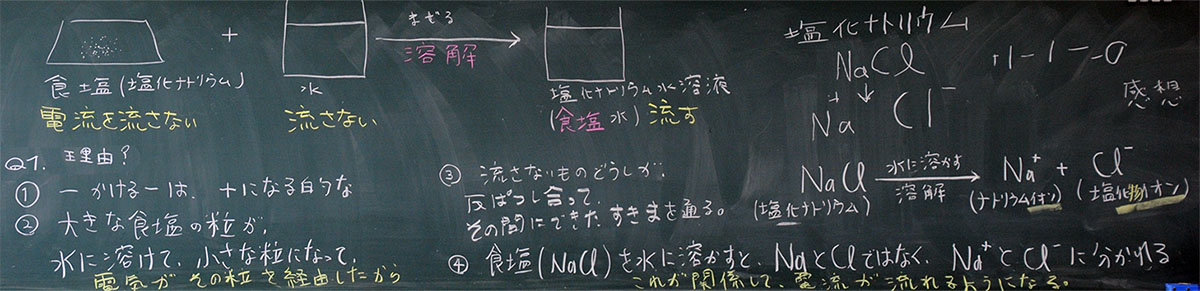 +
まぜる
溶解
食塩(塩化ナトリウム)
水
塩化ナトリウム水溶液
(食塩水)
電流を流さない
流さない
流す
Q1. 理由?
① ーかけるーは、+になる的な
② 大きな食塩の粒が、
水に溶けて、小さな粒になって、
電気がその粒を経由したから
③ 流さないものどうしが、
反ぱつし合って、
その間にできたすきまを通る。
④ 食塩(NaCl)を水に溶かすと、NaとClではなく、Na⁺とCl⁻に分かれる
これが関係して、電流が流れるようになる。
塩化ナトリウム
NaCl
Na⁺ Cl⁻
+1-1=0
感想
NaCl 水に溶かす 溶解 Na⁺ + Cl⁻
(塩化ナトリウム) (ナトリウムイオン) (塩化物イオン)